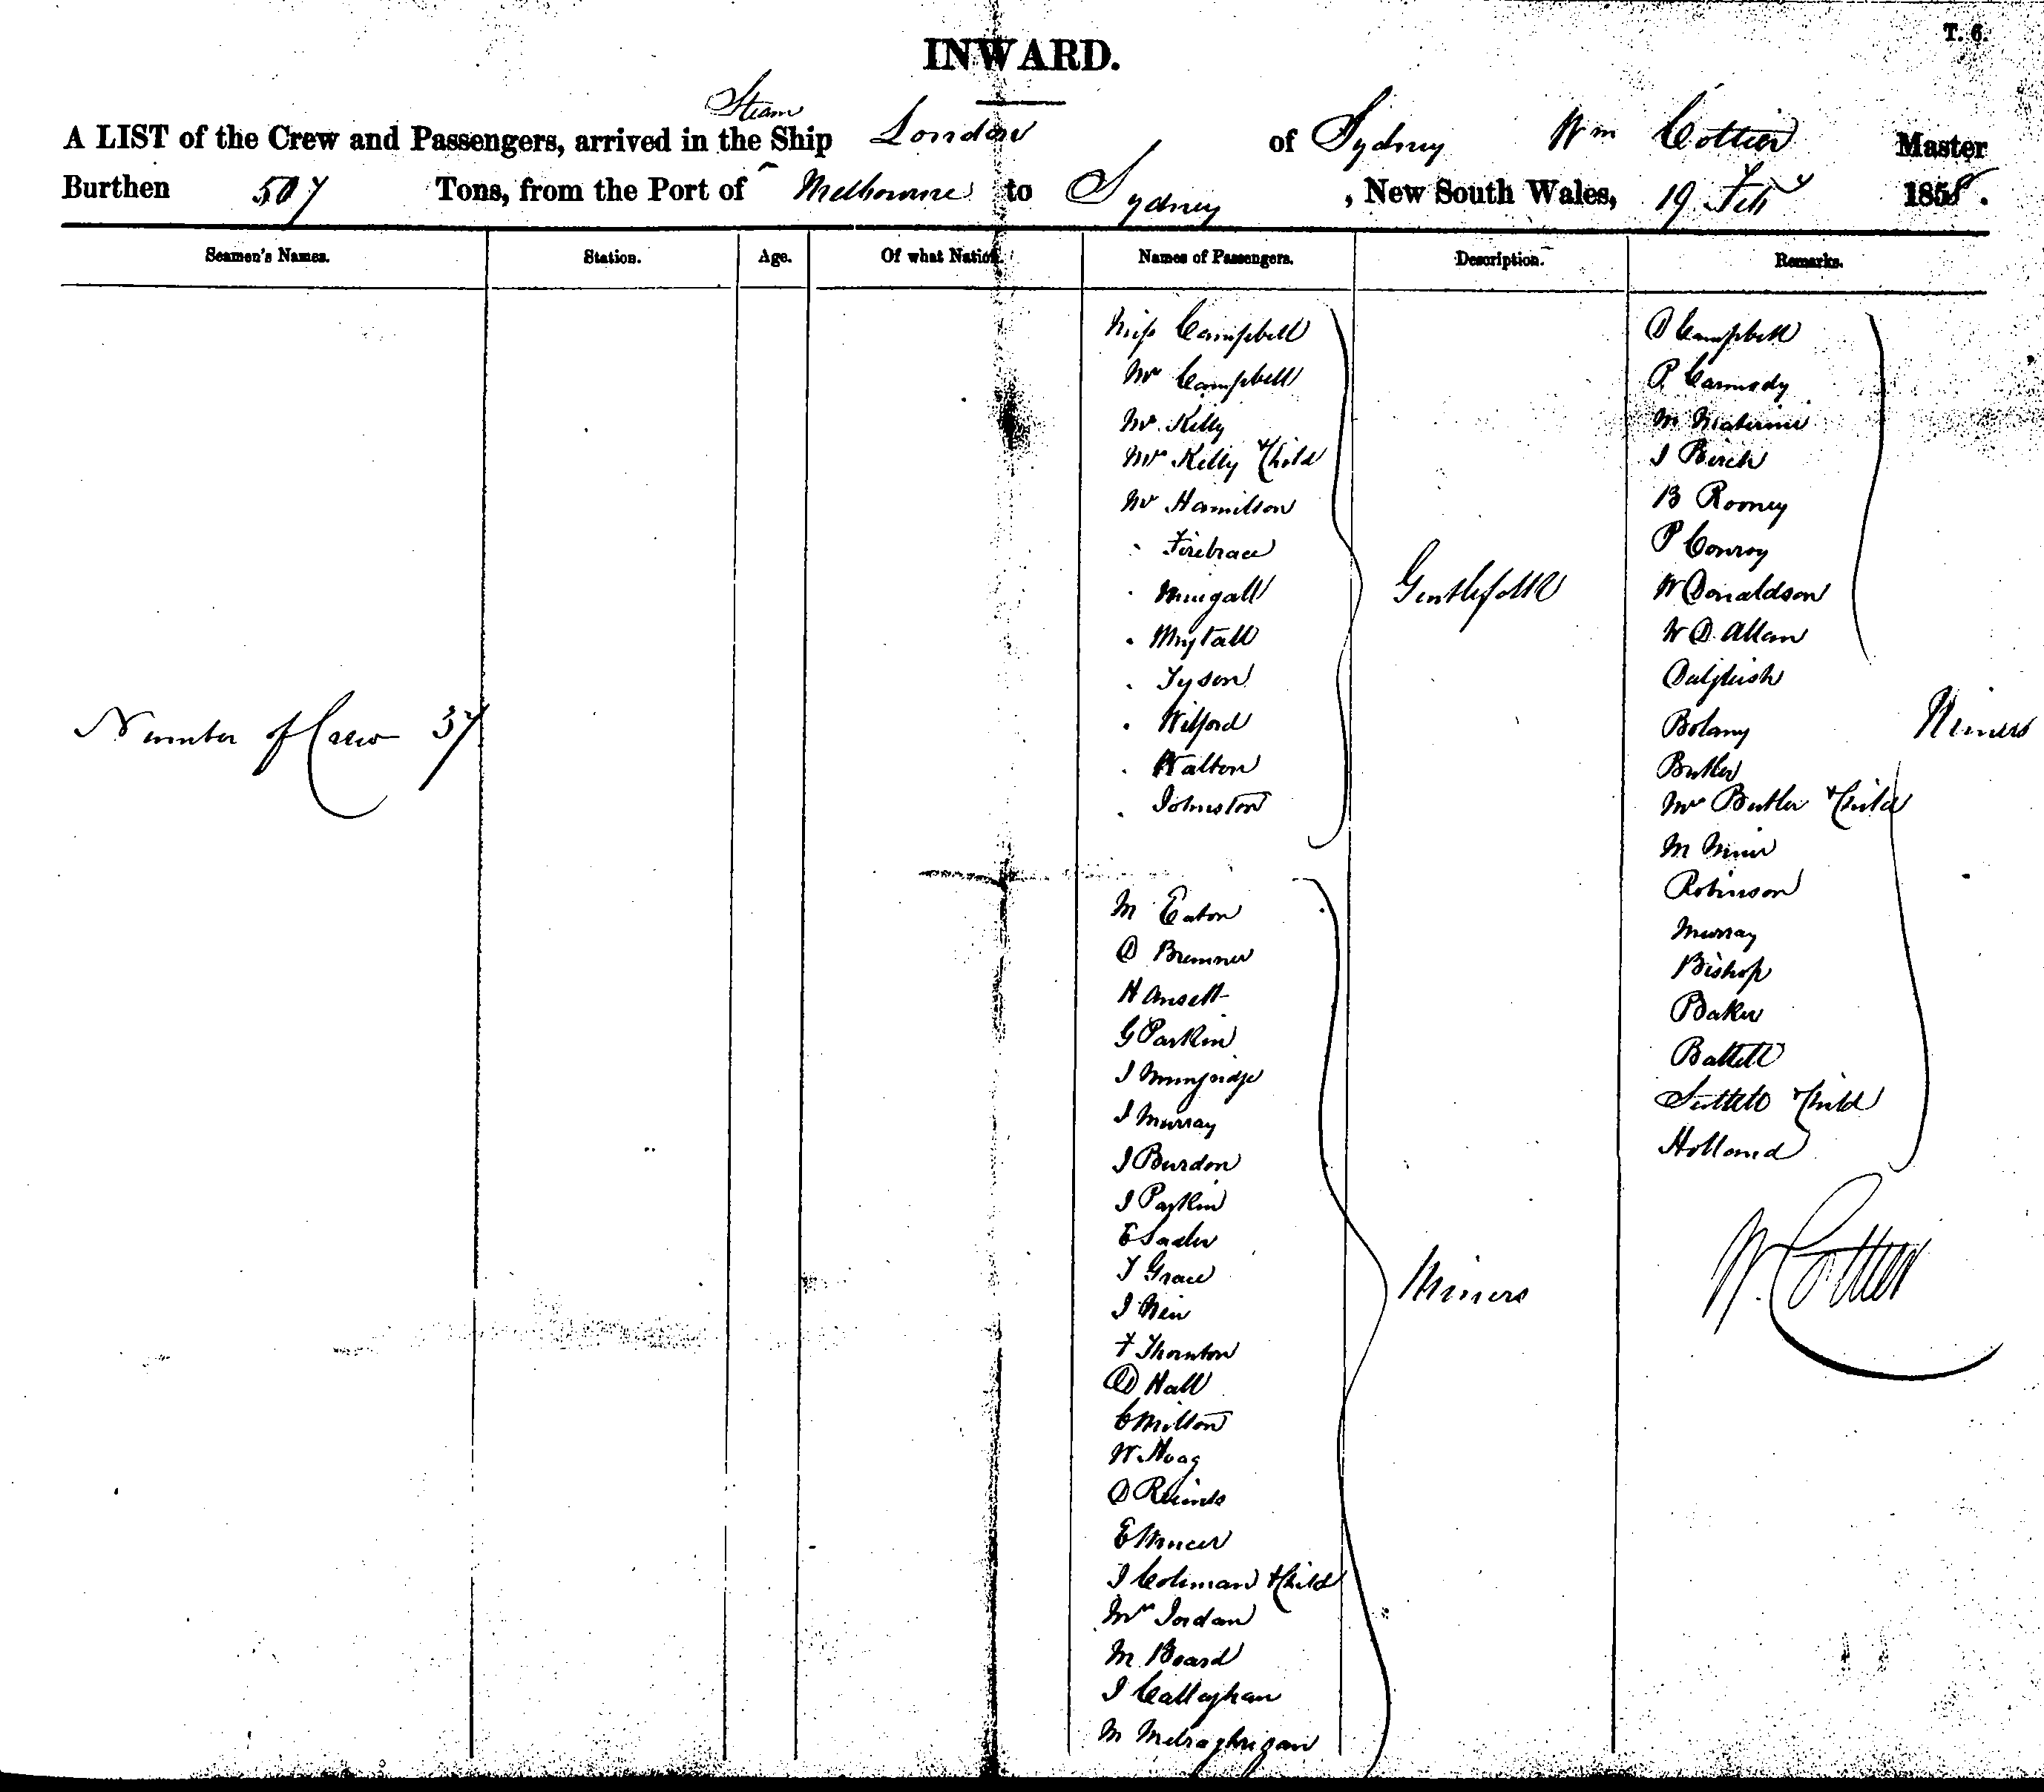 T. 6.
INWARD.
Steam
A LIST of the Crew and Passengers, arrived in the Ship London of Sydney Wm Cottier Master
Burthen 507 Tons, from the Port of Melbourne to Sydney, New South Wales, 19 Feby 1858.
Seamen's Names. Station. Age. Of what Nation. Names of Passengers. Description. Remarks.
Number of Crew 37
Miss Campbell
Mr Campbell
Mr Kelly
Mrs Kelly & Child
Mr Hamilton
" Firebrace
"
"
" Tyson
" Wilford
" Walton
" Johnston
Gentlefolk
M Eaton
D Bremner
H Ansett
G Parkin
J
J Murray
J Burdon
J Parkin
E
T Grace
J
F Thornton
D Hall
C Milton
W Hoag
D
E
J Coleman & Child
Mrs Jordan
M Board
J Callaghan
M
Miners
D Campbell
P. Carmody
M
J Birch
B Rooney
P Conroy
W Donaldson
W D Allan
Dalgleish
Botany
Butler
Mrs Butler & Child
M
Robinson
Murray
Bishop
Baker
& Child
Holland
Miners
W. Cottier